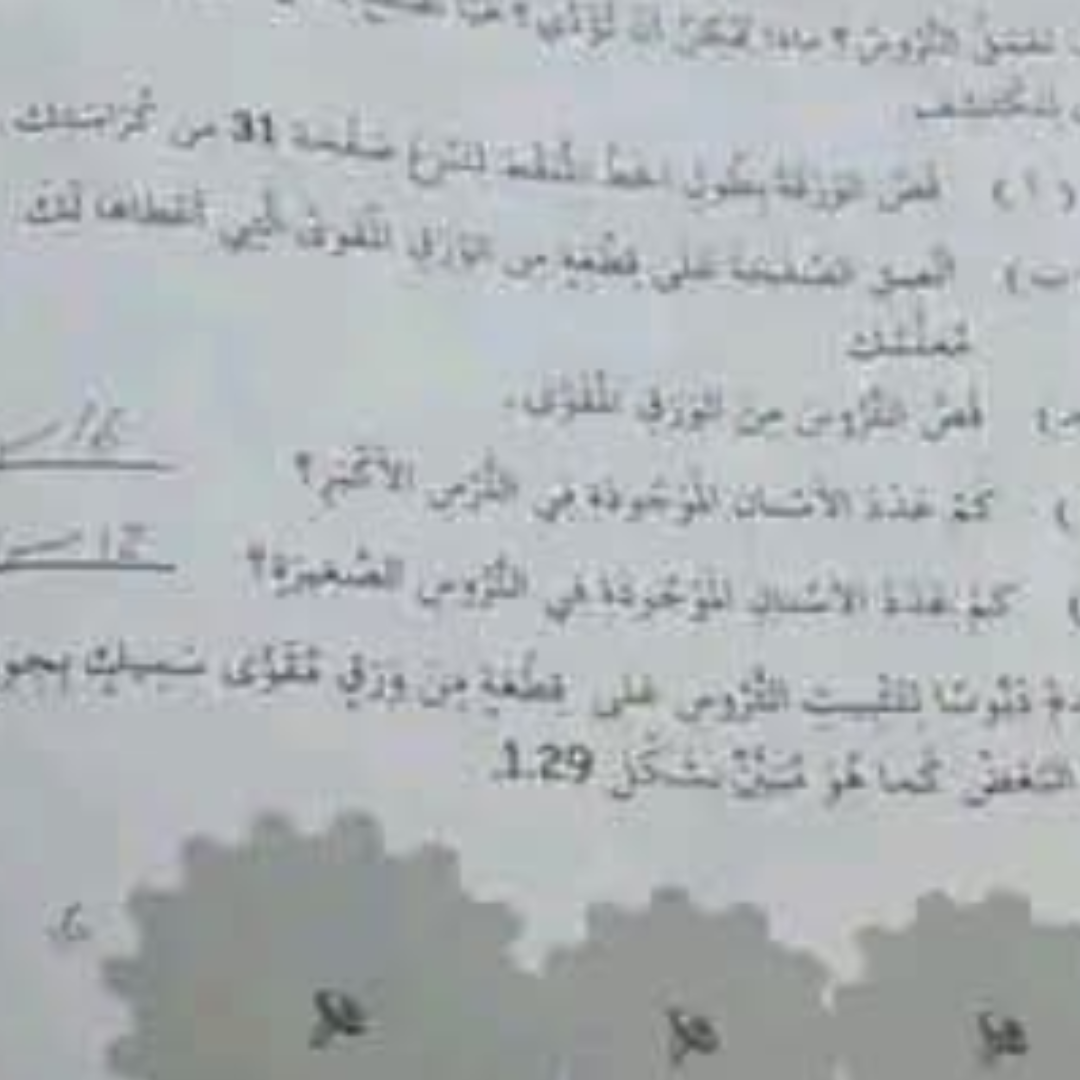 تعمل التروس؟ ماذا يمكن أن تؤدي؟ هيا
لنكتشف
(أ) قص الورقة بطول الخط المنقط لنزع صفحة 31 من كراستك
(ب) ألصق الصفحة على قطعة من الورق المقوى التي أعطاها لك
معلمك
قص التروس من الورق المقوى.
كم عدد الأسنان الموجودة في الترس الأكبر؟
كم عدد الأسنان الموجودة في التروس الصغيرة؟
دبوسا لتثبيت التروس على قطعة من ورق مقوى سميك
البعض كما هو مبين بشكل 1.29